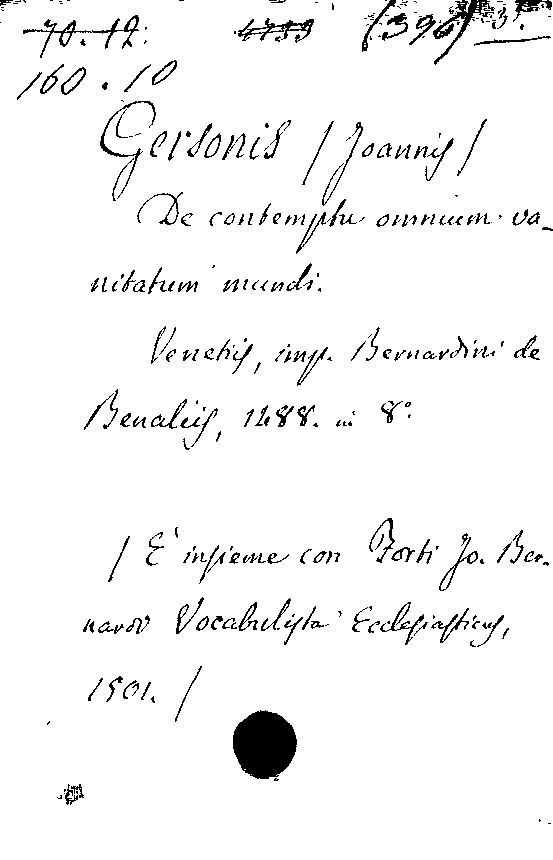 70. 12. 4753 (396) 3.
160. 10
Gersonis / Joannis /
De contemptu omnium va-
nitatum mundi.
Venetiis, imp. Bernardini de
Benaliis, 1488. in 8°.
/ E' insieme con Forti Jo. Ber-
nardo Vocabulista Ecclesiasticus,
1501. /